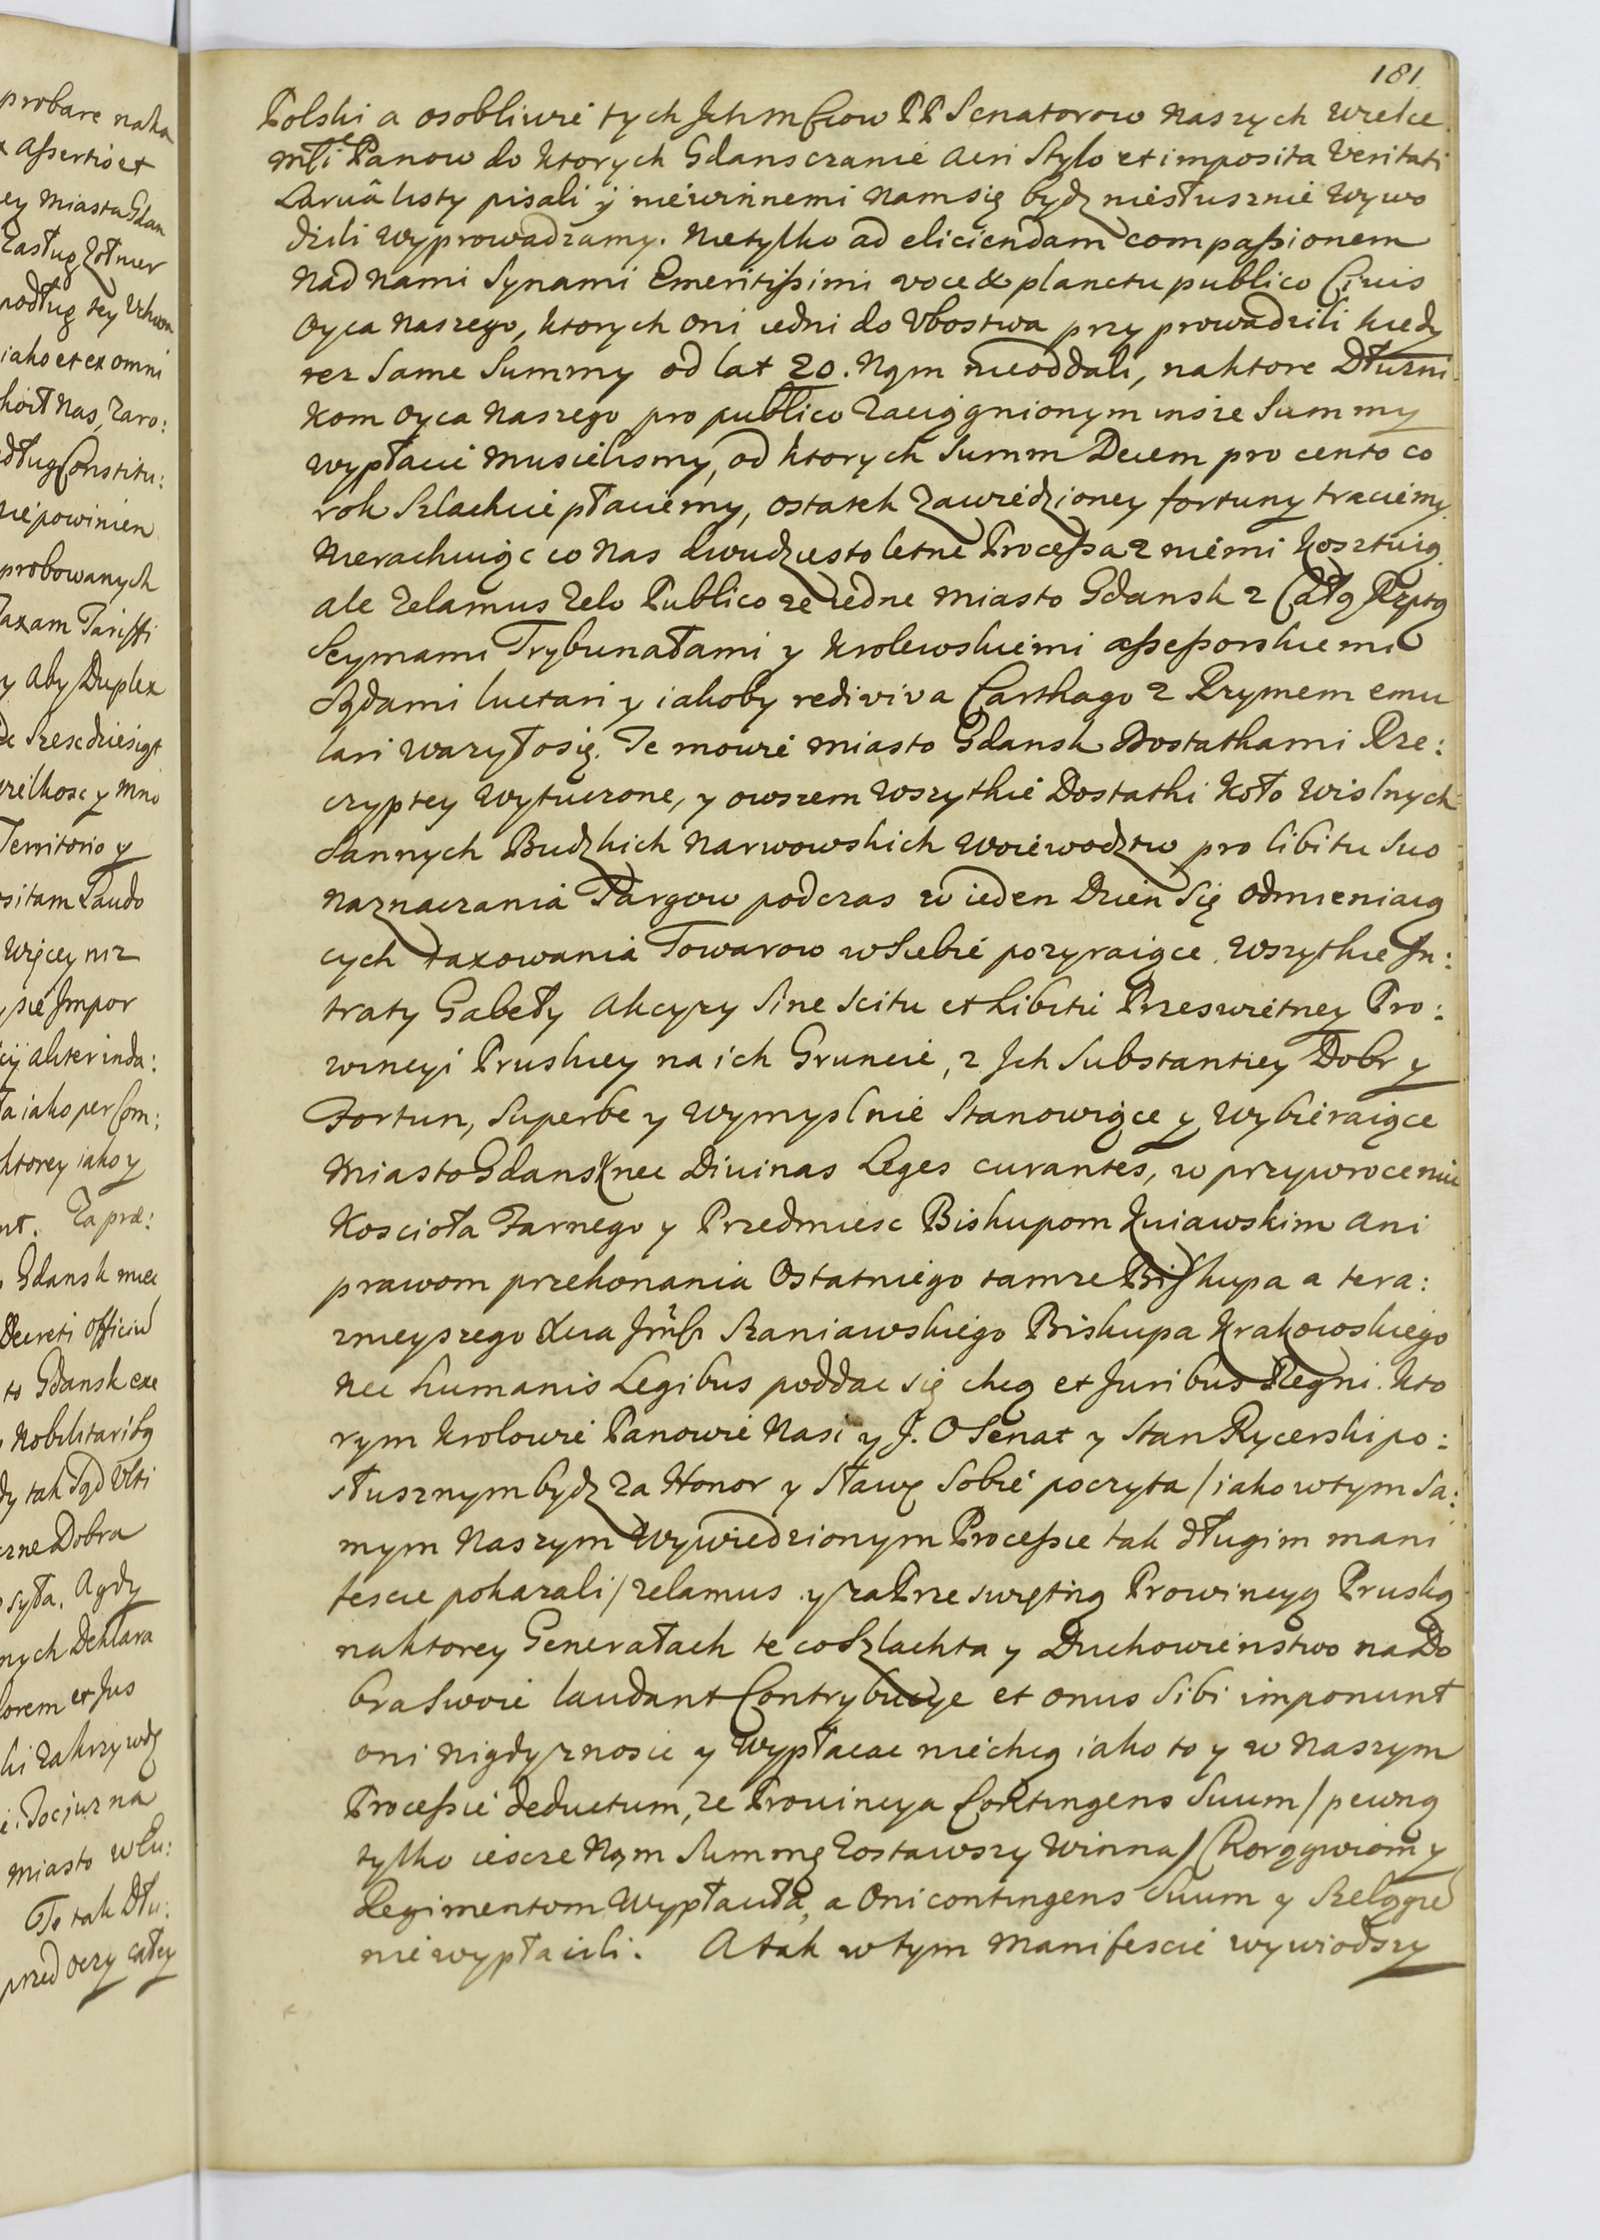 probare naka
assertio et
ey miasta Gdan
Zasług Zołnier
podług tey Uchwa
iako et ex omni
Zaro:
dług Constitu:
nie powinien
probowanych
Taxam Tariffi
y aby Duplex
Szescdziesiąt
y mno
Territorio y
sitam Laudo
więcey niz
Impor
aliter inda:
ta iako per Com:
ktorey iako y
nt. Za præ:
Gdansk miec
Decreti Officiu
to Gdansk exe
Nobilitaribq
dy tak Sąd Ulti
czne Dobra
syła. Agdy
nych Deklara
lorem et Jus
ki za krzywdę
Toc iuz na
miasto wEu:
To tak Dłu:
przed oczy całey
181.
Polski a osobliwie tych Jch mſciow PP Senatorow naszych wielce
młi Panow do ktorych Gdansczanie acri Stylo et imposita Veritati
Laruâ listy pisali ÿ niéwinnemi nam się bydz niesłusznie wywo
dzili wyprowadzamy. Nietylko ad eliciendam compassionem
nad nami Synami Emeritissimi voce & planctu publico Ciuis
Oyca naszego, ktorych oni iedni do Ubostwa przyprowadzili kiedy
tez same Summy od lat 20. Nąm nieoddali, naktore Dłuzni
kom oyca naszego pro publico zaciągnionym insze Summy
wypłacić musielismy, od ktorych Summ Decem pro cento co
rok Szlachcie płaciémy, ostatek zawiédzioney fortuny traciémy
Nierachuiąc co nas dwudziesto letne Processa z niémi kosztuią
ale Zelamus Zelo Publico ze iedne miasto Gdansk z Całą Rzptą
Seymami Trybunałami y krolewskiémi assessorskiemi
Sądami luctari y iakoby rediviva Carthago z Rzymem emu
lari wazyło się. Te mowié miasto Gdansk Dostatkami Rze:
czyptey wytuczone, y owszem wszytkié Dostatki koło wislnych
Sannych Budzkich Narwowskich woiéwodztw pro libitu suo
naznaczania Targow podczas w ieden Dzień Się odmieniaią
cych taxowania Towarow w siebié pozyraiące. Wszytkie In:
traty Gabeły akcyzy Sine scitu et libitu Przeswiétney Pro:
wincyi Pruskiey na ich Gruncié, z Jch Substantiey Dobr y
Fortun, Superbe y wymyslnié Stanowiące y wybiéraiące
Miasto Gdansk nec Divinas Leges curantes, w przywroceniu
Koscioła Farnego y Przedmiesc Biskupom Kuiawskim ani
prawom przekonania Ostatniégo tamze Biskupa a tera:
znieyszego Xcia Jmſci Szaniawskiégo Biskupa Krakowskiégo
nec humanis Legibus poddac się chcą et Juribus Regni. kto
rym krolowié Panowié Nasi y J. O Senat y Stan Rycerski po:
słusznym bydz za Honor y Sławę Sobié poczyta / iako w tym sa:
mym naszym wywiedzionym Processie tak długim mani
fescie pokazali / zelamus y za Przeswiętną Prowincyą Pruską
naktorey Generałach te co Szlachta y Duchowiénstwo na Do
bra swoié laudant Contrybucye et onus sibi imponunt
oni nigdy znosic y wypłacac niéchcą iako to y w naszym
Processié deductum, ze Prouincya Contingens Suum / pewną
tylko iescze Nąm Summę zostawszy winna / Chorągwiom y
Regimentom wypłaciła, a oni contingens Suum y Szelągu
nié wypłacili. A tak w tym manifescié wywiodszy